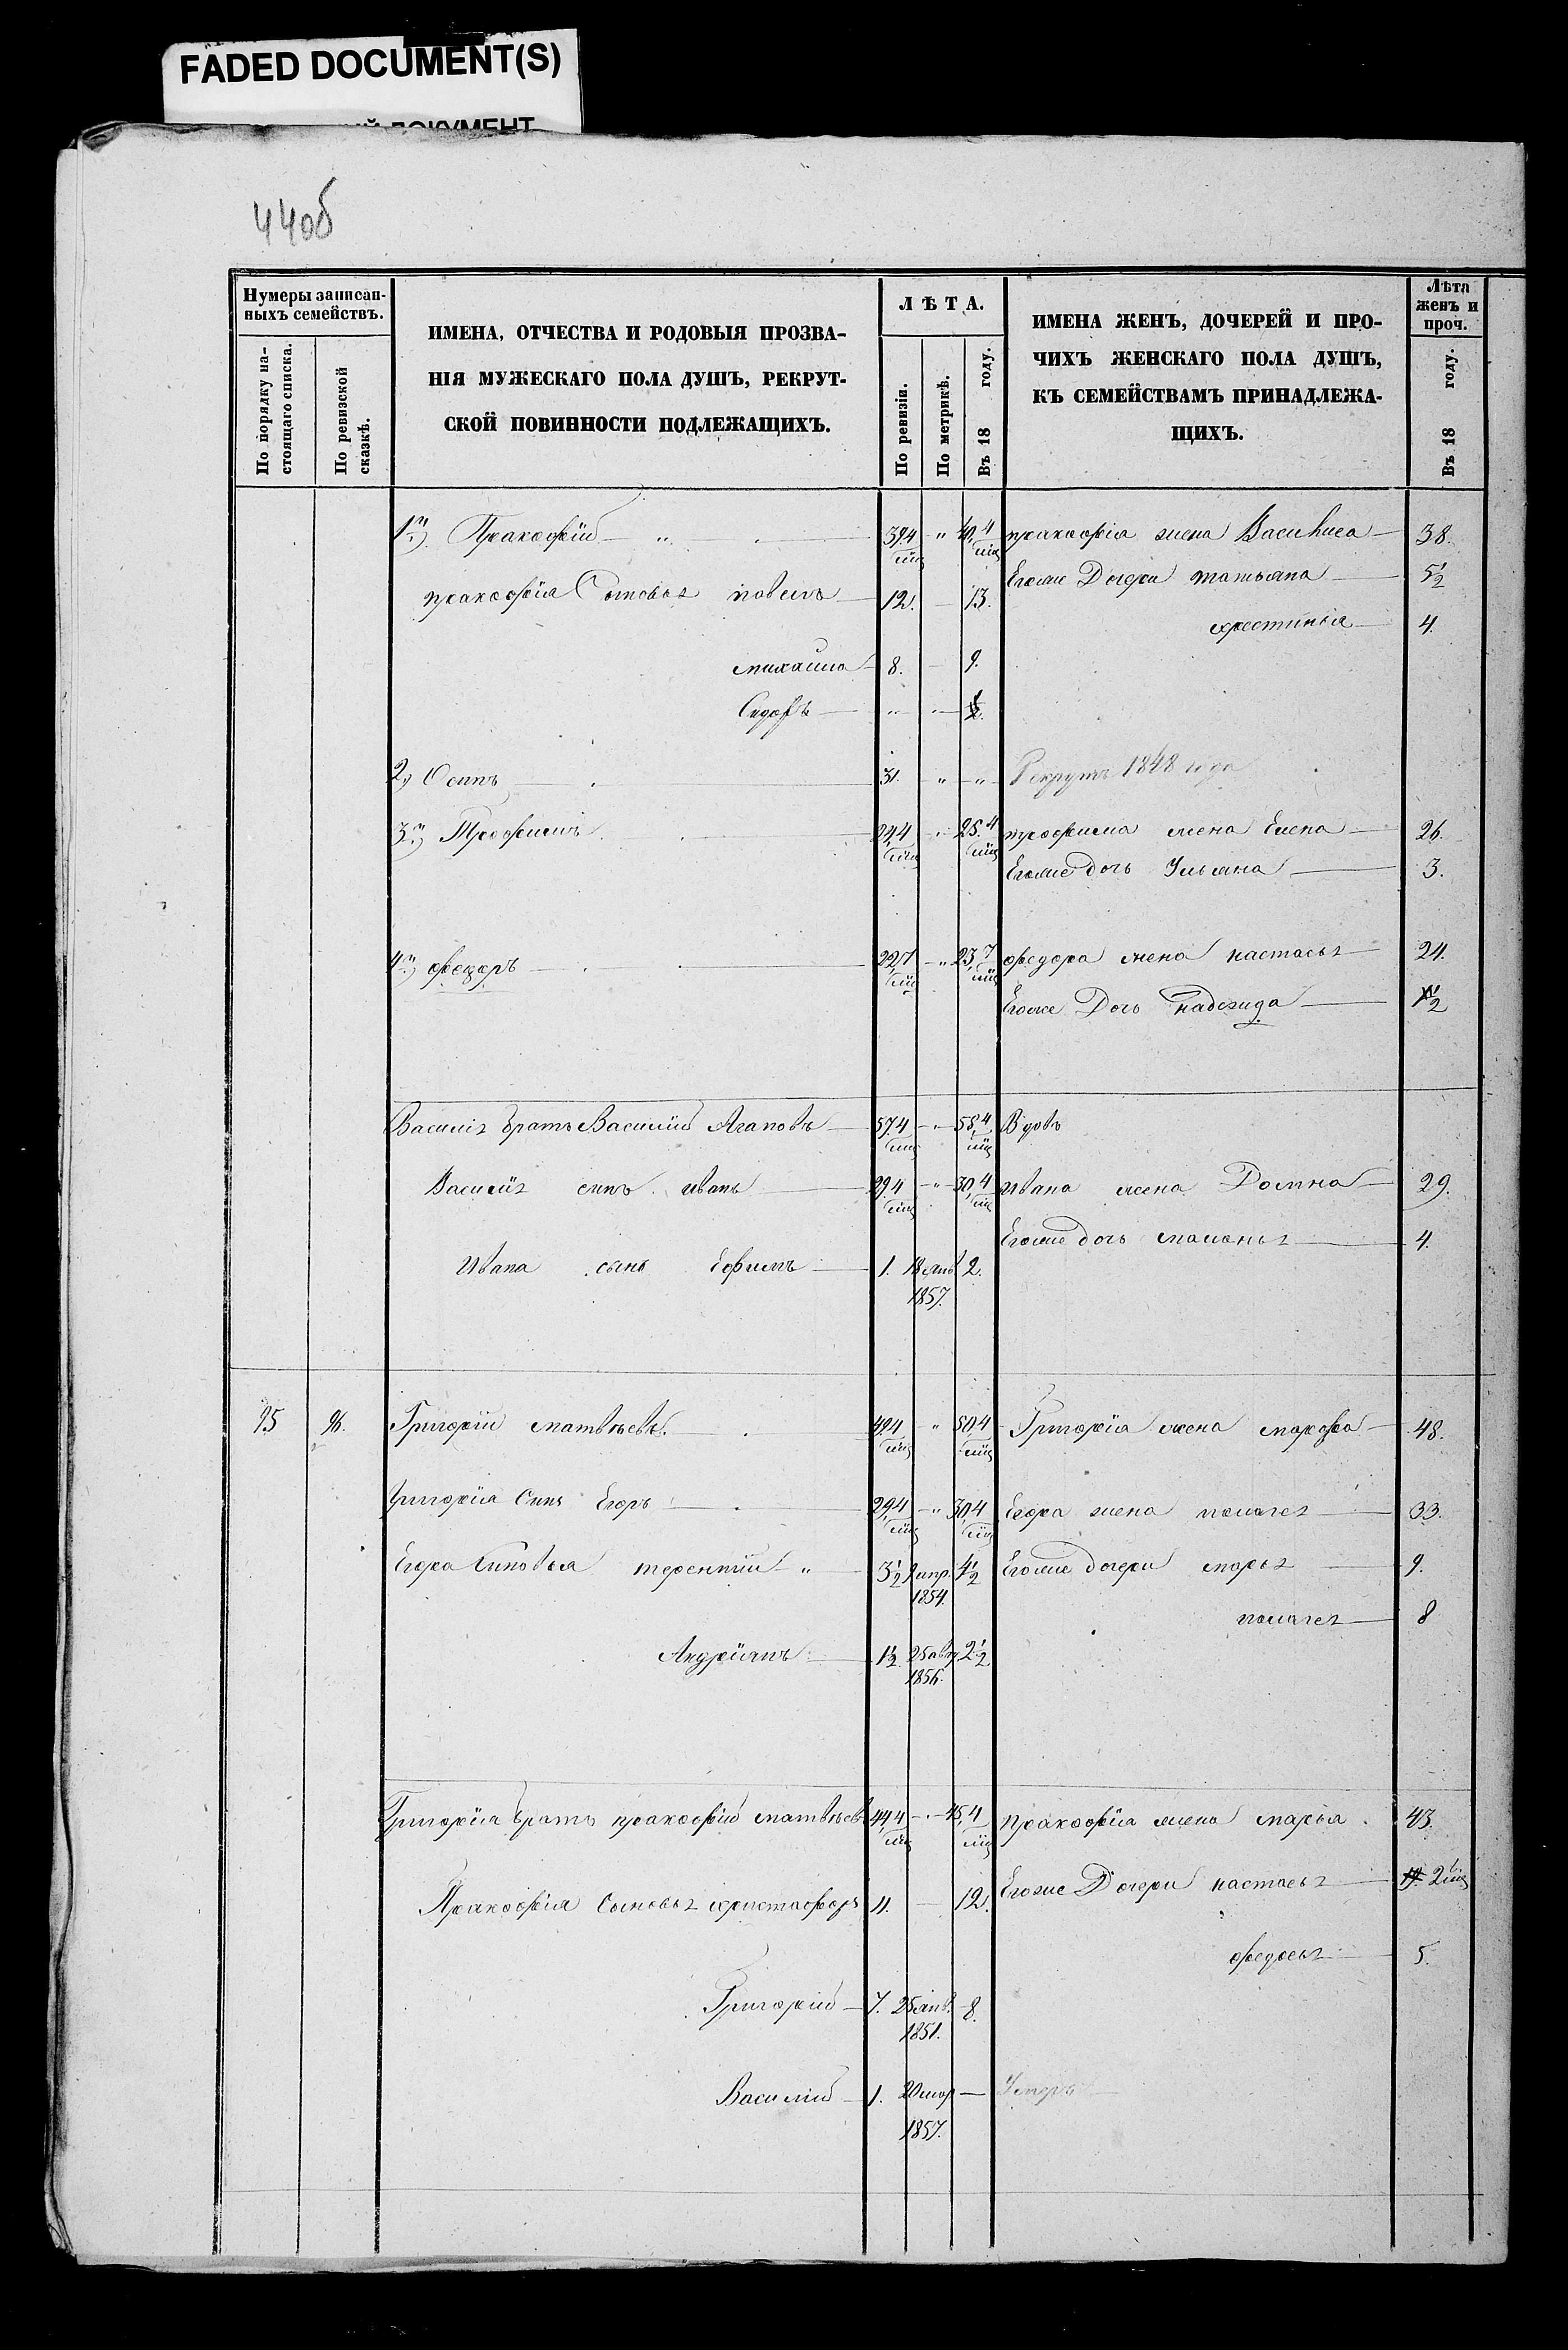 FADED DOCUMENT(S)
ДОКУМЕНТ
44об
Нумеры записан-
ныхъ семействъ.
По порядку на-
стоящаго списка.
По ревизской
сказкѣ.
ИМЕНА, ОТЧЕСТВА И РОДОВЫЯ ПРОЗВА-
НІЯ МУЖЕСКАГО ПОЛА ДУШЪ, РЕКРУТ-
СКОЙ ПОВИННОСТИ ПОДЛЕЖАЩИХЪ.
ЛѢТА.
По ревизіи.
По метрикѣ.
Въ 18 году.
ИМЕНА ЖЕНЪ, ДОЧЕРЕЙ И ПРО-
ЧИХЪ ЖЕНСКАГО ПОЛА ДУШЪ,
КЪ СЕМЕЙСТВАМЪ ПРИНАДЛЕЖА-
ЩИХЪ.
Лѣта
женъ и
проч.
Въ 18 году.
1й) Пракофій — 39,4 мѣц " 40,4 мѣц пракофія жена Василиса — 38.
Егоже Дочери татьяна — 5½
пракофія Сыновья павелъ — 12. — 13.
христинья — 4.
михаила — 8. — 9.
Сидоръ — " — "
2й) Осипъ — 31. " — " Рекрутъ 1848 года
3й) Трофимъ — 24,4 мѣц " 25,4 мѣц трофима жена Елена — 26.
Егоже дочь Ульяна — 3.
4й) федоръ — 22,7 мѣц " 23,7 мѣц федора жена настасья — 24.
Егоже Дочь надежда — ½
Василія братъ Василій Агаповъ — 57,4 мѣц " 58,4 мѣц Вдовъ
Василія сынъ иванъ — 29,4 мѣц " 30,4 мѣц ивана жена Домна — 29.
Егоже дочь маланья — 4.
Ивана сынъ Ефимъ — 1. 18 янв 2.
1857.
95 96. Григорій матвѣевъ. 49,4 мѣц " 50,4 мѣц Григорія жена марфа — 48.
Григорія Сынъ Егоръ — 29,4 мѣц " 30,4 мѣц Егора жена палагея — 33.
Егора сыновья терентій " 3½ апр. 4½ Егоже дочери марья — 9.
1854.
палагея — 8
Андріянъ — 1½ 25 авгу 2½
1856.
Григорія братъ пракофій матвѣевъ 44,4 мѣц — 45,4 мѣц пракофія жена марья. 43.
Егоже Дочери настасья —
Пракофія Сыновья христофоръ 11. — 12.
федосья — 5.
Григорій — 7. 25 янв. 8.
1851.
Василій — 1. 20 мар — Умеръ —
1857.